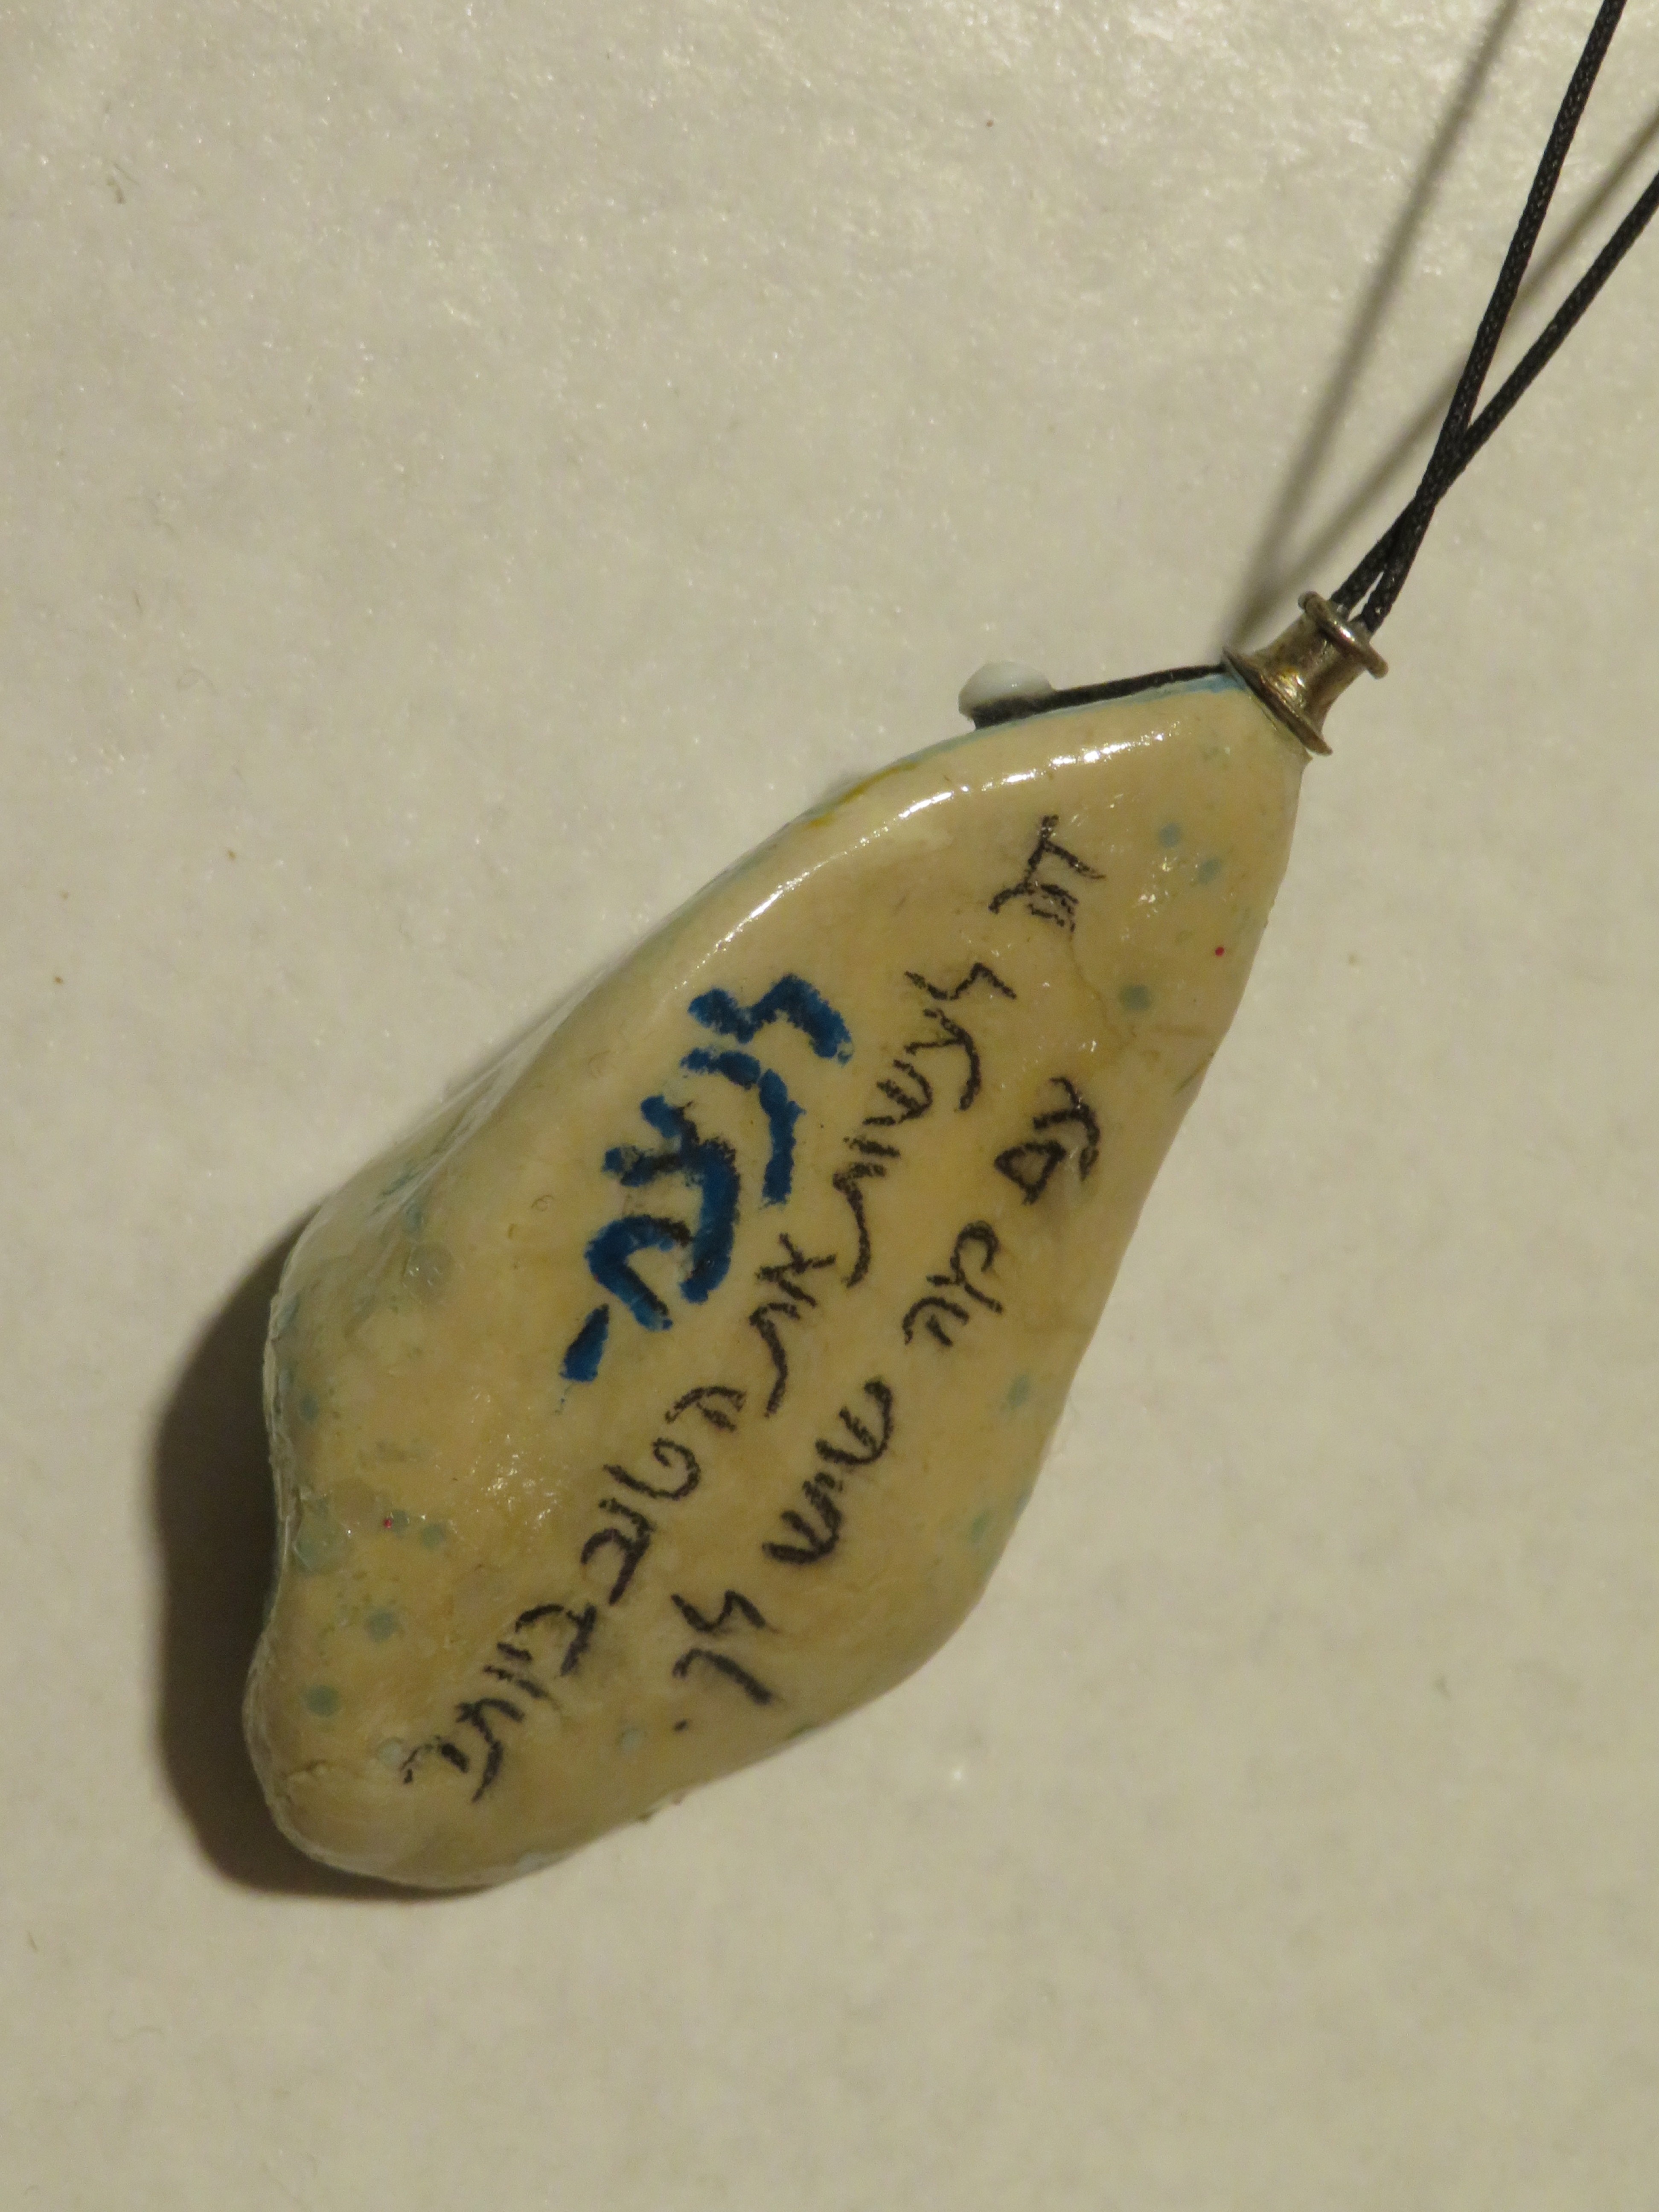 לנצח-
זה לעשות את הטוב ביותר
עם מה שיש לך.